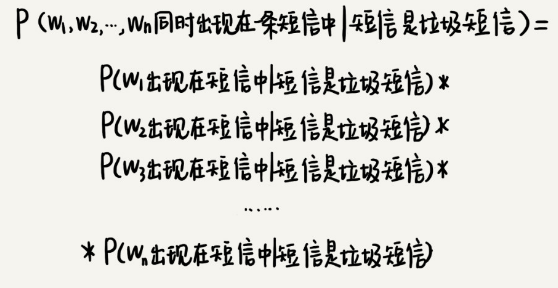 P (W₁,W₂,…,Wn同时出现在一条短信中|短信是垃圾短信)=
P(W₁出现在短信中|短信是垃圾短信)*
P(W₂出现在短信中|短信是垃圾短信)*
P(W₃出现在短信中|短信是垃圾短信)*
……
* P(Wn出现在短信中|短信是垃圾短信)